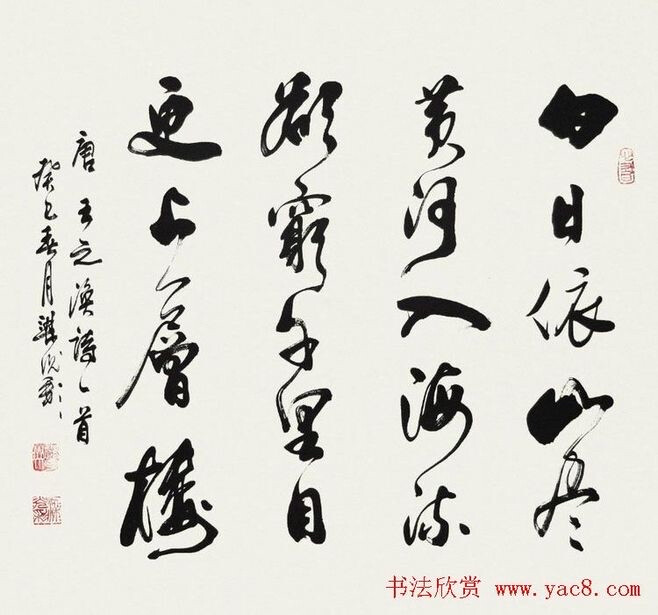 白日依山尽
黄河入海流
欲穷千里目
更上一層楼
唐王之涣詩一首
癸巳春月
书法欣赏 www.yac8.com